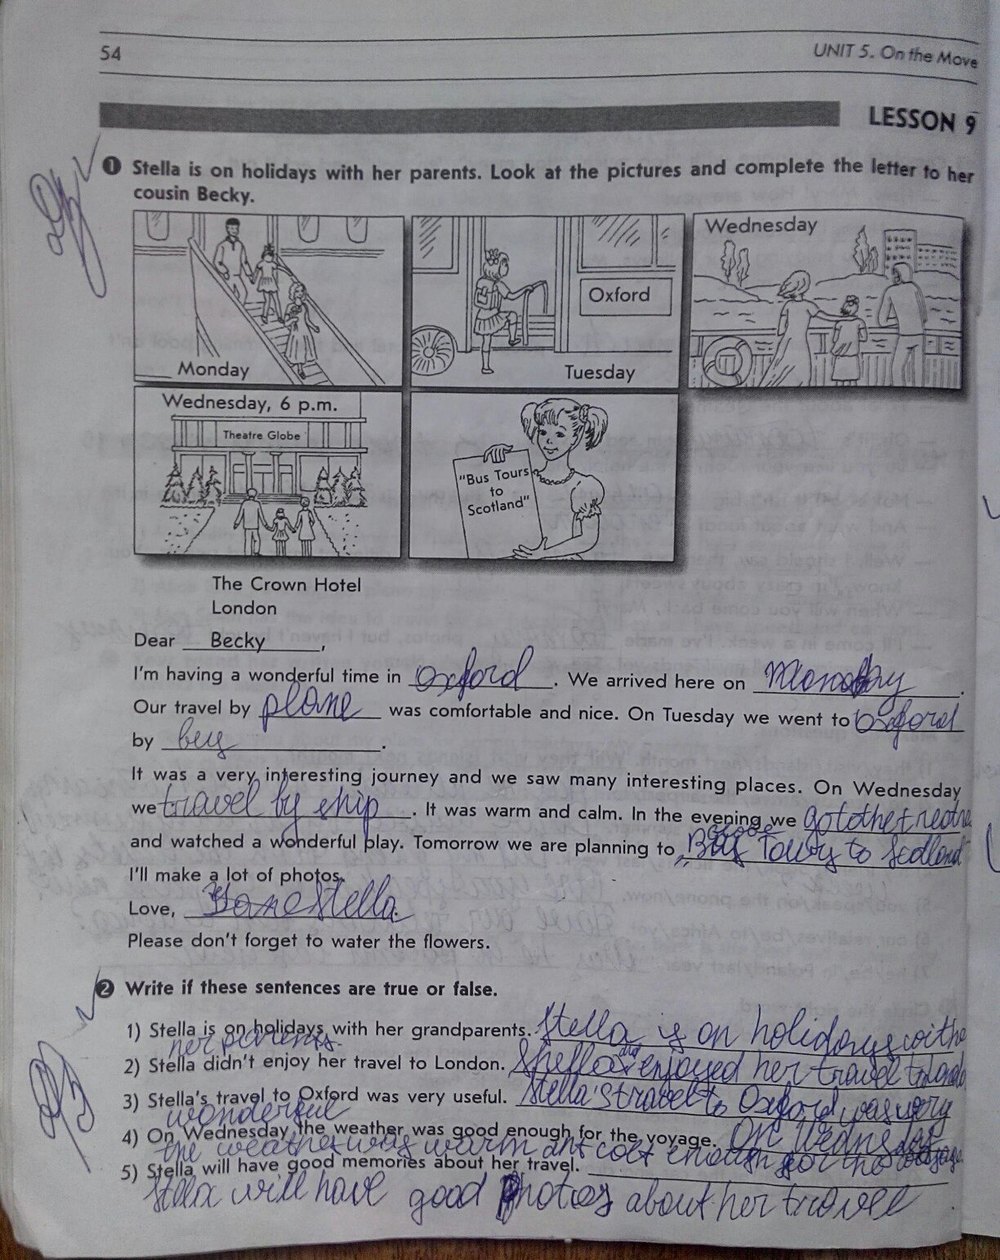 54
UNIT 5. On the Move
LESSON 9
1 Stella is on holidays with her parents. Look at the pictures and complete the letter to her
cousin Becky.
Monday
Oxford
Tuesday
Wednesday
Wednesday, 6 p.m.
Theatre Globe
"Bus Tours
to
Scotland"
The Crown Hotel
London
Dear Becky,
I'm having a wonderful time in Oxford. We arrived here on Monday.
Our travel by plane was comfortable and nice. On Tuesday we went to Oxford
by bus.
It was a very interesting journey and we saw many interesting places. On Wednesday
we travel by ship. It was warm and calm. In the evening we
and watched a wonderful play. Tomorrow we are planning to
I'll make a lot of photos.
Love, Stella.
Please don't forget to water the flowers.
2 Write if these sentences are true or false.
1) Stella is on holidays with her grandparents. Stella is on holidays with
her parents.
2) Stella didn't enjoy her travel to London. enjoyed her travel
3) Stella's travel to Oxford was very useful. Stella's travel to Oxford was very
wonderful
4) On Wednesday the weather was good enough for the voyage. On
the weather was warm enough for the
5) Stella will have good memories about her travel.
Stella will have good photos about her travel